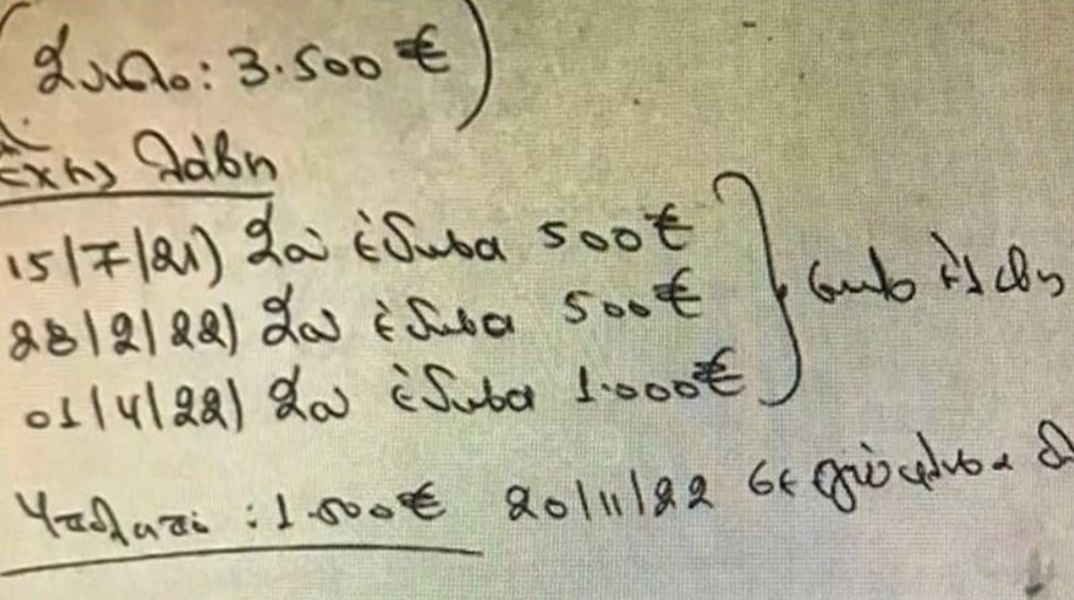 (Σύνολο: 3.500€)
Έχεις λάβει
15/7/21) Σου έδωσα 500€
28/2/22) Σου έδωσα 500€
01/4/22) Σου έδωσα 1.000€
Υπόλοιπο: 1.500€ 20/11/22 σε